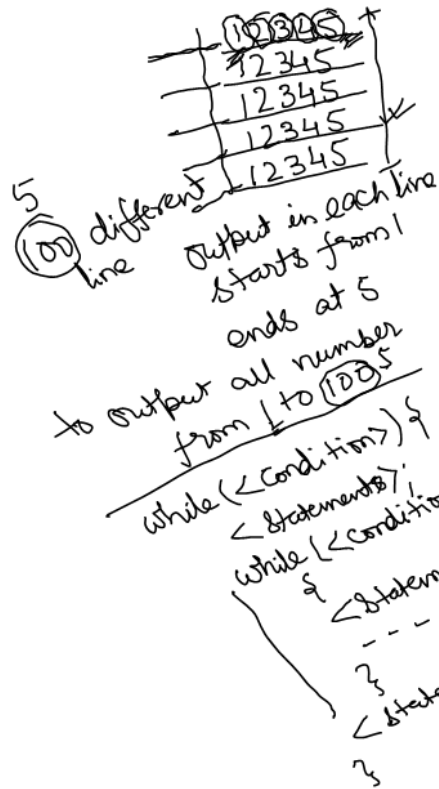 12345
12345
12345
12345
12345
5
100 different
line
output in each line
starts from 1
ends at 5
to output all number
from 1 to 100 5
while(<condition>){
<statements>;
while(<condition
{
<statem
- - -
}
<state
}